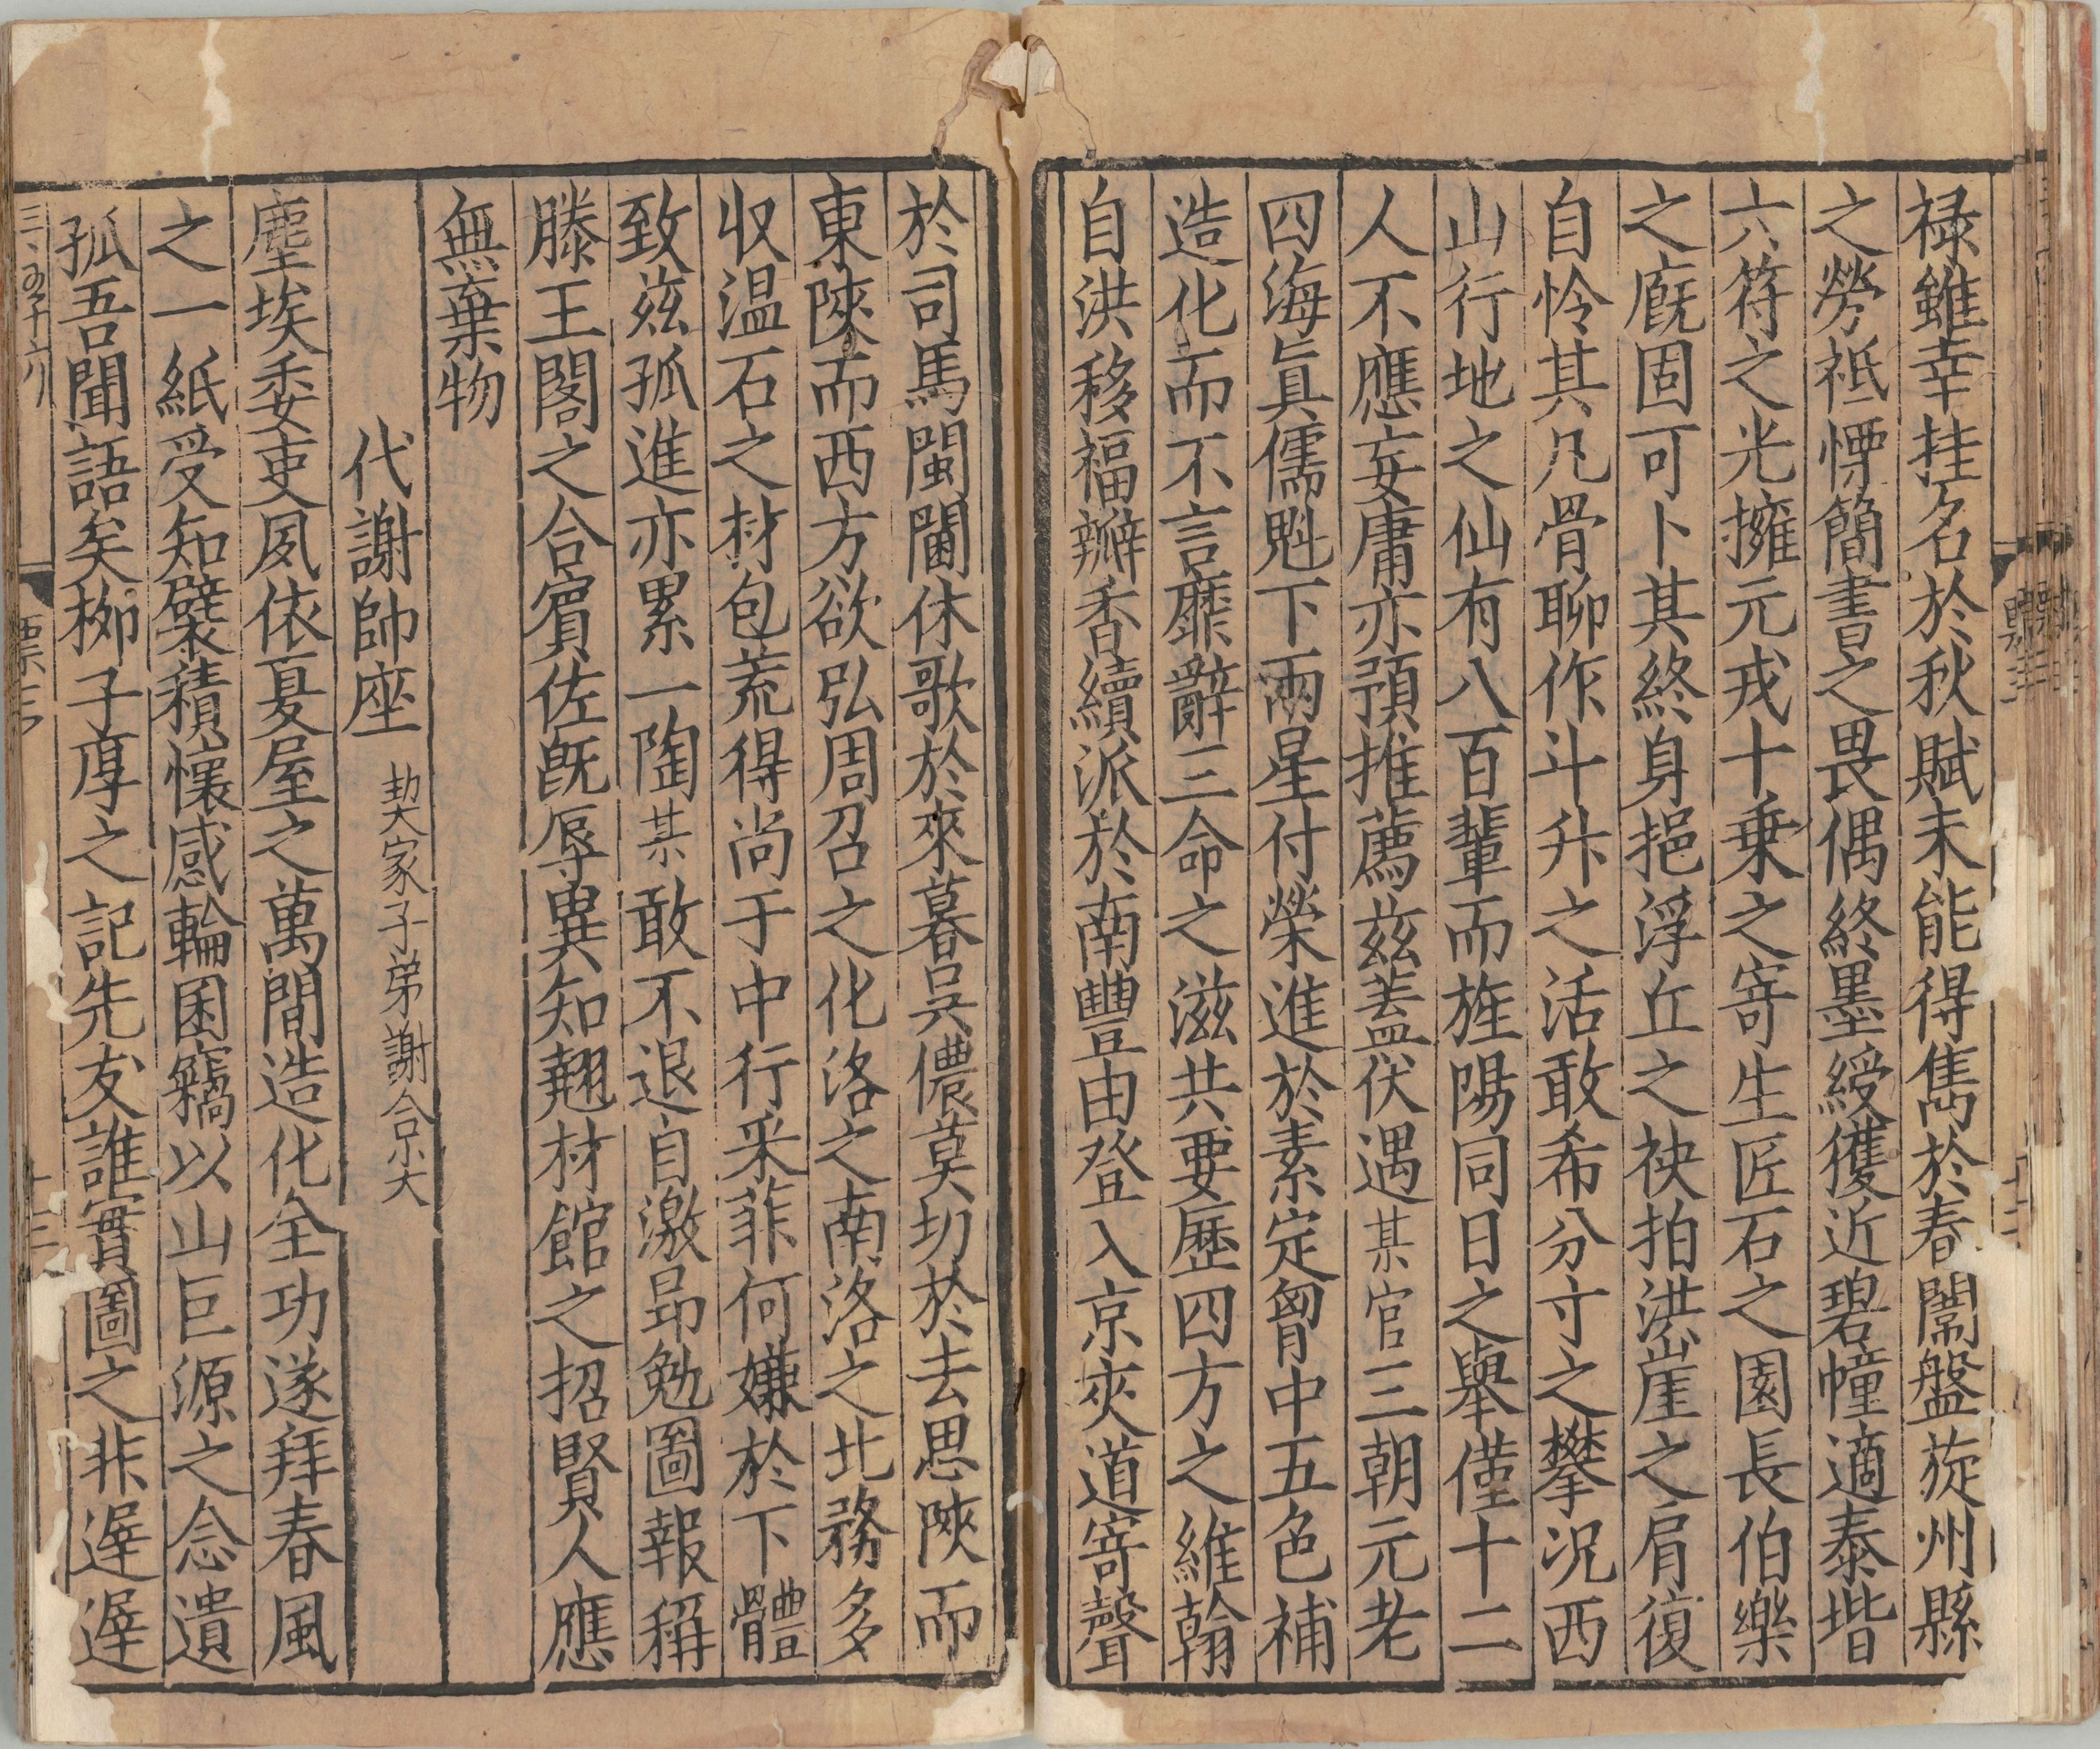 禄雖幸挂名於秋賦未能得雋於春闈盤旋州縣
之勞祗慄簡書之畏偶終墨綬獲近碧幢適泰堦
六符之光擁元戎十乗之寄生匠石之園長伯樂
之廐固可卜其終身挹浮丘之袂拍洪崖之肩復
自怜其凡骨聊作斗升之活敢希分寸之攀況西
山行地之仙有八百輩而旌陽同日之舉僅十二
人不應妄庸亦預推薦茲蓋伏遇某官三朝元老
四海眞儒魁下兩星付榮進於素定胷中五色補
造化而不言靡辭三命之滋共要歷四方之維翰
自洪移福瓣香續派於南豐由登入京夾道寄聲
於司馬閩閫休歌於來暮呉儂莫切於去思陝而
東陝而西方欲弘周召之化洛之南洛之北務多
収温石之材包荒得尚于中行采菲何嫌於下體
致兹孤進亦累一陶某敢不退自激昂勉圖報稱
滕王閣之合賓佐旣辱異知翹材館之招賢人應
無棄物
代謝帥座 契家子弟謝合京大
塵埃委吏夙依夏屋之萬間造化全功遂拜春風
之一紙受知襞積懷感輪囷竊以山巨源之念遺
孤吾聞語矣栁子厚之記先友誰實圖之非遲遲